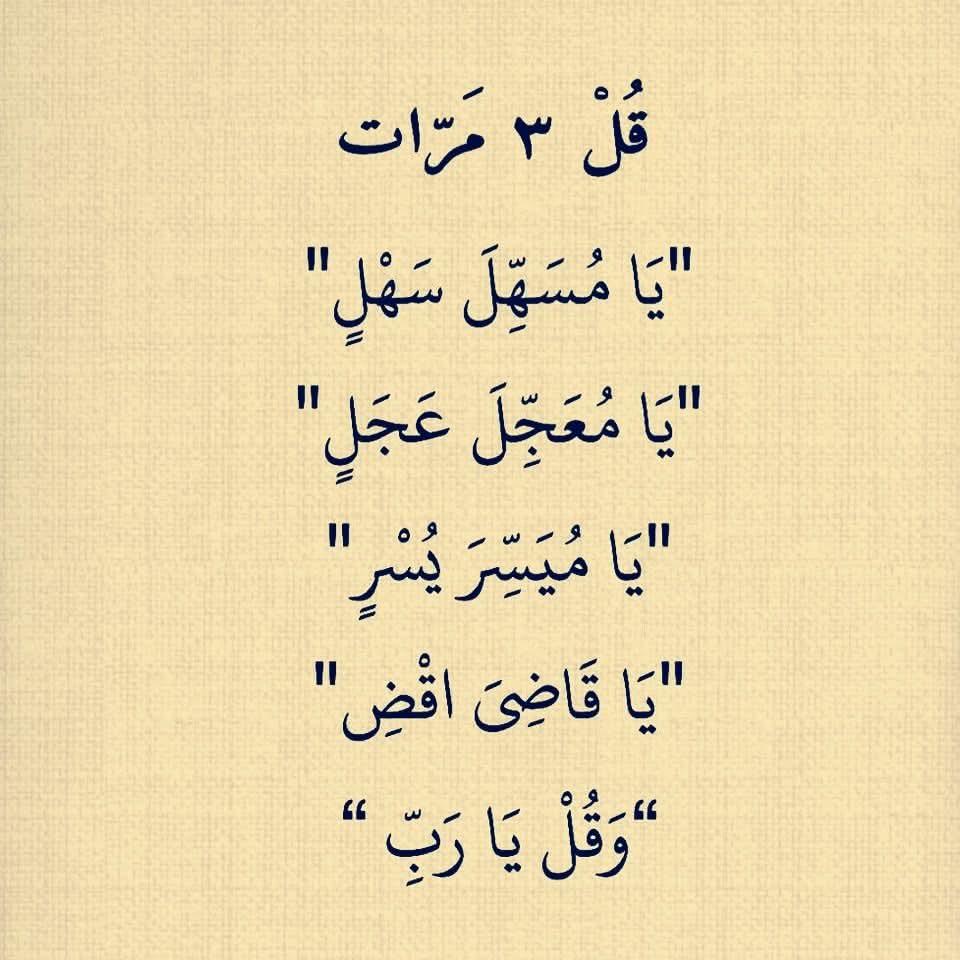 قُلْ ٣ مَرّات
"يَا مُسَهِّلَ سَهْلٍ"
"يَا مُعَجِّلَ عَجَلٍ"
"يَا مُيَسِّرَ يُسْرٍ"
"يَا قَاضِىَ اقْضِ"
“وَقُلْ يَا رَبِّ “